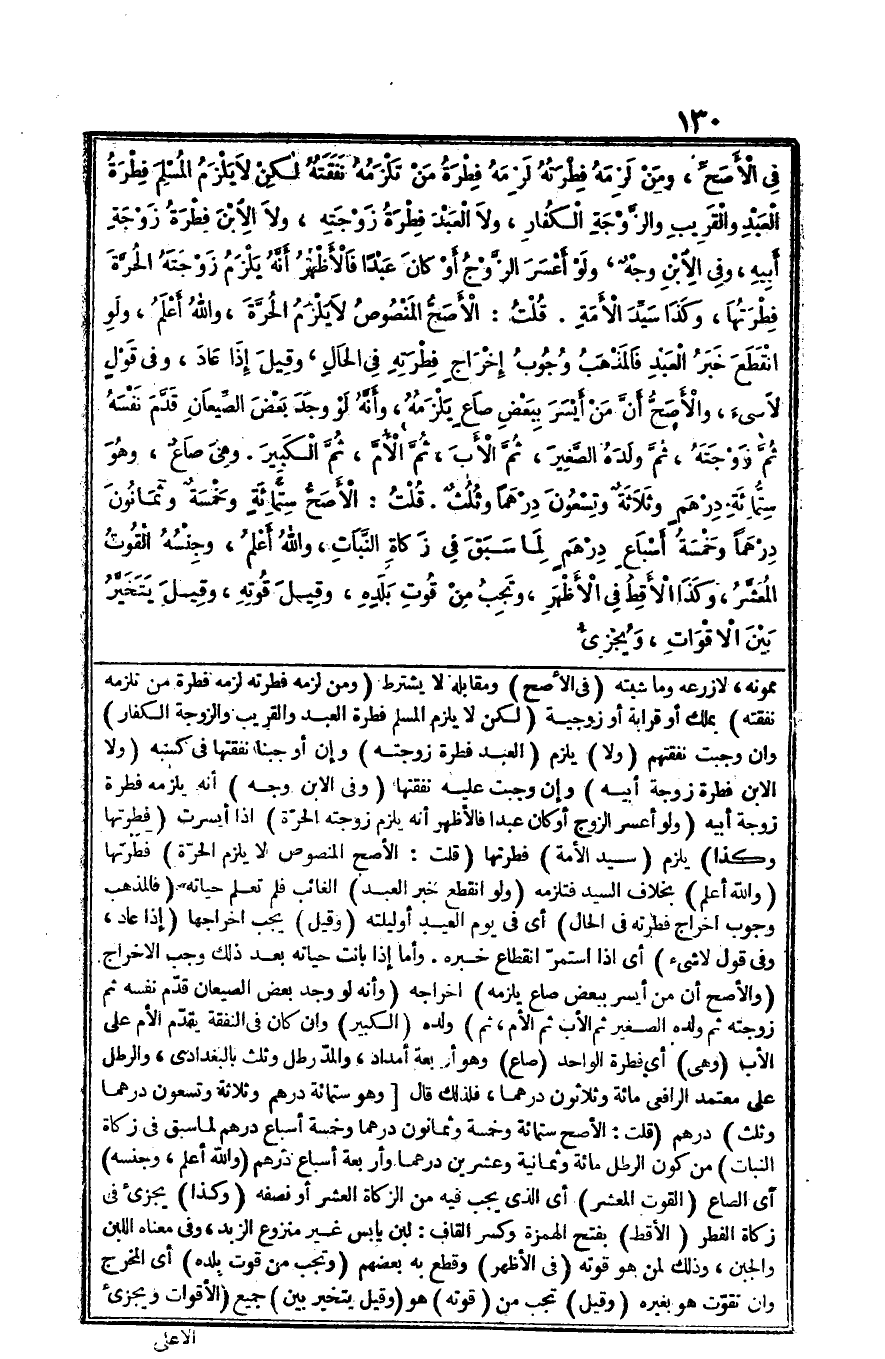 ١٣٠
فِي الْأَصَحِّ ، ومَنْ لَزِمَهُ فِطْرَتُهُ لَزِمَهُ فِطْرَةُ مَنْ تَلْزَمُهُ نَفَقَتُهُ لَكِنْ لاَيَلْزَمُ الْمُسْلِمَ فِطْرَةُ
الْعَبْدِ والْقَرِيبِ والزَّوْجَةِ الْكُفَّارِ ، ولاَ الْعَبْدَ فِطْرَةُ زَوْجَتِهِ ، ولاَ الاِبْنَ فِطْرَةُ زَوْجَةِ
أَبِيهِ ، وفِي الاِبْنِ وجْهٌ ، ولَوْ أَعْسَرَ الزَّوْجُ أَوْ كَانَ عَبْدًا فَالْأَظْهَرُ أَنَّهُ يَلْزَمُ زَوْجَتَهُ الْحُرَّةَ
فِطْرَتُهَا ، وكَذَا سَيِّدَ الْأَمَةِ . قُلْتُ : الْأَصَحُّ الْمَنْصُوصُ لاَيَلْزَمُ الْحُرَّةَ ، واللهُ أَعْلَمُ ، ولَوِ
انْقَطَعَ خَبَرُ الْعَبْدِ فَالْمَذْهَبُ وُجُوبُ إِخْرَاجِ فِطْرَتِهِ فِي الْحَالِ ، وقِيلَ إِذَا عَادَ ، وفى قَوْلٍ
لاَشَيءَ ، والْأَصَحُّ أَنَّ مَنْ أَيْسَرَ بِبَعْضِ صَاعٍ يَلْزَمُهُ ، وأَنَّهُ لَوْ وجَدَ بَعْضَ الصِّيعَانِ قَدَّمَ نَفْسَهُ
ثُمَّ زَوْجَتَهُ ، ثُمَّ ولَدَهُ الصَّغِيرَ ، ثُمَّ الْأَبَ ، ثُمَّ الْأُمَّ ، ثُمَّ الْكَبِيرَ . وهِيَ صَاعٌ ، وهُوَ
سِتُّمِائَةِ دِرْهَمٍ وثَلاَثَةٌ وتِسْعُونَ دِرْهَمًا وثُلُثٌ . قُلْتُ : الْأَصَحُّ سِتُّمِائَةٍ وخَمْسَةٌ وثَمَانُونَ
دِرْهَمًا وخَمْسَةُ أَسْبَاعِ دِرْهَمٍ لِمَا سَبَقَ فِي زَكَاةِ النَّبَاتِ ، واللهُ أَعْلَمُ ، وجِنْسُهُ الْقُوتُ
الْمُعَشَّرُ ، وكَذَا الْأَقِطُ فِي الْأَظْهَرِ ، وتَجِبُ مِنْ قُوتِ بَلَدِهِ ، وقِيلَ قُوتِهِ ، وقِيلَ يَتَخَيَّرُ
بَيْنَ الْاقْوَاتِ ، ويُجْزِئُ
ممونه ، لازرعه وماشيته (فى الأصح) ومقابله لا يشترط (ومن لزمه فطرته لزمه فطرة من تلزمه
نفقته) بملك أو قرابة أو زوجية (لكن لا يلزم المسلم فطرة العبد والقريب والزوجة الكفار)
وان وجبت نفقتهم (ولا) يلزم (العبد فطرة زوجته) وإن أوجبنا نفقتها فى كسبه (ولا
الابن فطرة زوجة أبيه) وإن وجبت عليه نفقتها (وفى الابن وجه) أنه يلزمه فطرة
زوجة أبيه (ولو أعسر الزوج أوكان عبدا فالأظهر أنه يلزم زوجته الحرّة) اذا أيسرت (فطرتها
وكذا) يلزم (سيد الأمة) فطرتها (قلت : الأصح المنصوص لا يلزم الحرّة) فطرتها
(والله أعلم) بخلاف السيد فتلزمه (ولو انقطع خبر العبد) الغائب فلم تعلم حياته (فالمذهب
وجوب اخراج فطرته فى الحال) أى فى يوم العيد أوليلته (وقيل) يجب اخراجها (إذا عاد ،
وفى قول لاشىء) أى اذا استمرّ انقطاع خبره . وأما إذا بانت حياته بعد ذلك وجب الاخراج
(والأصح أن من أيسر ببعض صاع يلزمه) اخراجه (وأنه لو وجد بعض الصيعان قدّم نفسه ثم
زوجته ثم ولده الصغير ثم الأب ثم الأم ، ثم) ولده (الكبير) وان كان فى النفقة يقدّم الأم على
الأب (وهى) أى فطرة الواحد (صاع) وهو أربعة أمداد ، والمدّ رطل وثلث بالبغدادى ، والرطل
على معتمد الرافعى مائة وثلاثون درهما ، فلذلك قال [وهو ستمائة درهم وثلاثة وتسعون درهما
وثلث) درهم (قلت : الأصح ستمائة وخمسة وثمانون درهما وخمسة أسباع درهم لما سبق فى زكاة
النبات) من كون الرطل مائة وثمانية وعشرين درهما وأربعة أسباع درهم (والله أعلم ، وجنسه)
أى الصاع (القوت المعشر) أى الذى يجب فيه من الزكاة العشر أو نصفه (وكذا) يجزئ فى
زكاة الفطر (الأقط) بفتح الهمزة وكسر القاف : لبن يابس غير منزوع الزبد ، وفى معناه اللبن
والجبن ، وذلك لمن هو قوته (فى الأظهر) وقطع به بعضهم (وتجب من قوت بلده) أى المخرج
وان تقوّت هو بغيره (وقيل) تجب من (قوته) هو (وقيل يتخير بين) جميع (الأقوات ويجزئ
الاعلى